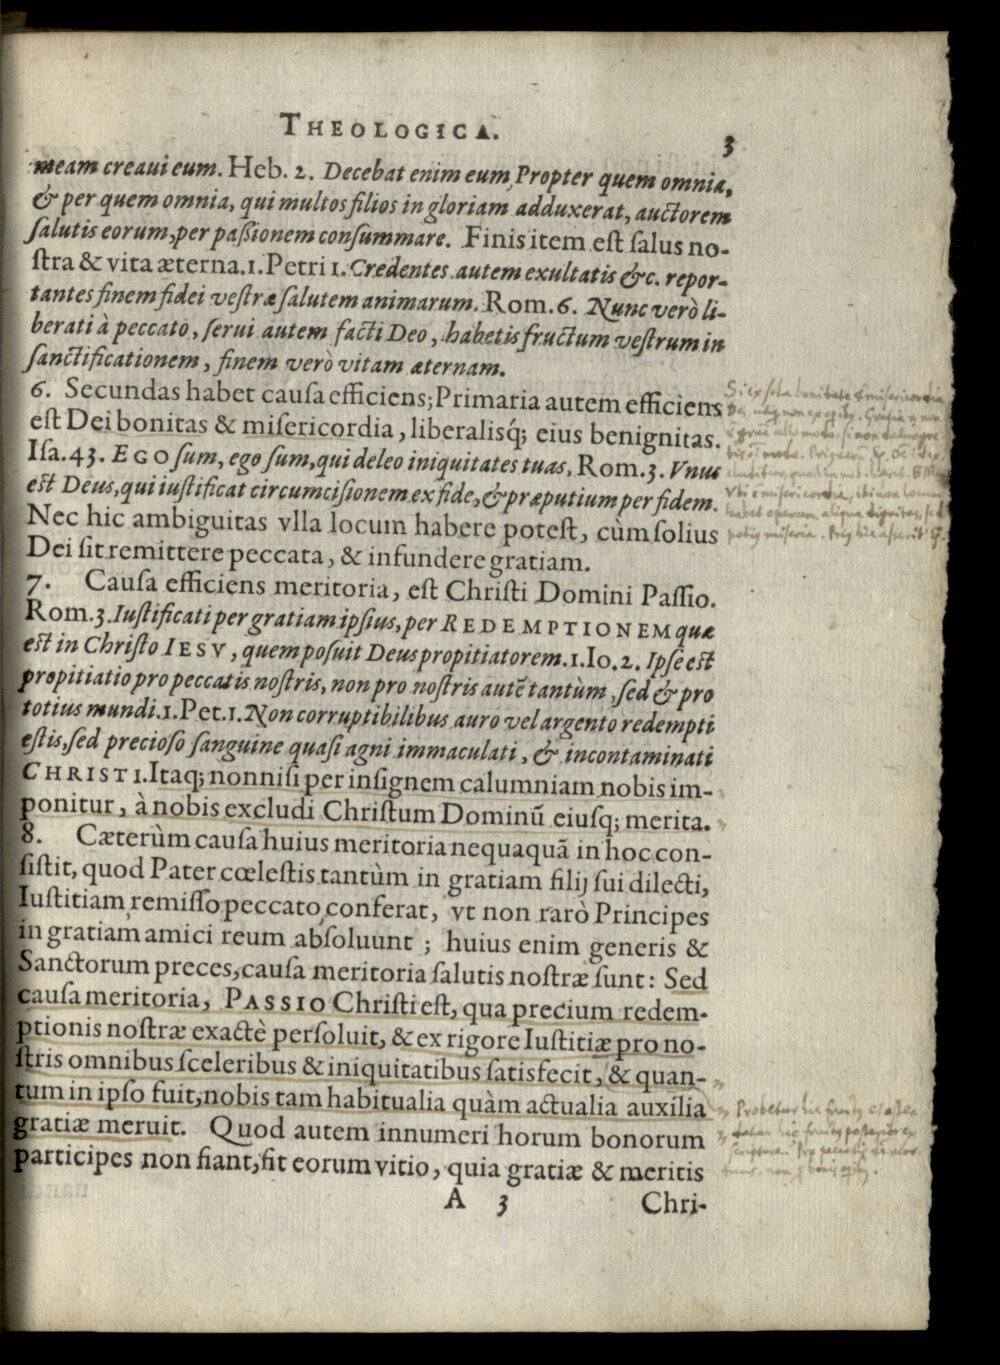 THEOLOGICA. 3
meam creaui eum. Heb. 2. Decebat enim eum, Propter quem omnia,
& per quem omnia, qui multos filios in gloriam adduxerat, auctorem
ſalutis eorum, per paßionem conſummare. Finis item eſt ſalus no-
ſtra & vita æterna. 1. Petri 1. Credentes autem exultatis &c. repor-
tantes finem fidei veſtræ ſalutem animarum. Rom. 6. Nunc verò li-
berati à peccato, ſerui autem facti Deo, habetis fructum veſtrum in
ſanctificationem, finem verò vitam æternam.
6. Secundas habet cauſa efficiens; Primaria autem efficiens
eſt Dei bonitas & miſericordia, liberalisq́; eius benignitas.
Iſa. 43. EGO ſum, ego ſum, qui deleo iniquitates tuas, Rom. 3. Vnus
eſt Deus, qui iuſtificat circumciſionem ex fide, & præputium per fidem.
Nec hic ambiguitas vlla locum habere poteſt, cùm ſolius
Dei ſit remittere peccata, & infundere gratiam.
7. Cauſa efficiens meritoria, eſt Chriſti Domini Paſſio.
Rom. 3. Iuſtificati per gratiam ipſius, per REDEMPTIONEM quæ
eſt in Chriſto IESV, quem poſuit Deus propitiatorem. 1. Io. 2. Ipſe eſt
propitiatio pro peccatis noſtris, non pro noſtris autē tantùm, ſed & pro
totius mundi. 1. Pet. 1. Non corruptibilibus auro vel argento redempti
eſtis, ſed precioſo ſanguine quaſi agni immaculati, & incontaminati
CHRISTI. Itaq; nonniſi per inſignem calumniam nobis im-
ponitur, à nobis excludi Chriſtum Dominū eiuſq; merita.
8. Cæterùm cauſa huius meritoria nequaquā in hoc con-
ſiſtit, quod Pater cœleſtis tantùm in gratiam filij ſui dilecti,
Iuſtitiam, remiſſo peccato, conferat, vt non rarò Principes
in gratiam amici reum abſoluunt; huius enim generis &
Sanctorum preces, cauſa meritoria ſalutis noſtræ ſunt: Sed
cauſa meritoria, PASSIO Chriſti eſt, qua precium redem-
ptionis noſtræ exactè perſoluit, & ex rigore Iuſtitiæ pro no-
ſtris omnibus ſceleribus & iniquitatibus ſatisfecit, & quan-
tum in ipſo fuit, nobis tam habitualia quàm actualia auxilia
gratiæ meruit. Quod autem innumeri horum bonorum
participes non fiant, fit eorum vitio, quia gratiæ & meritis
A 3 Chri-